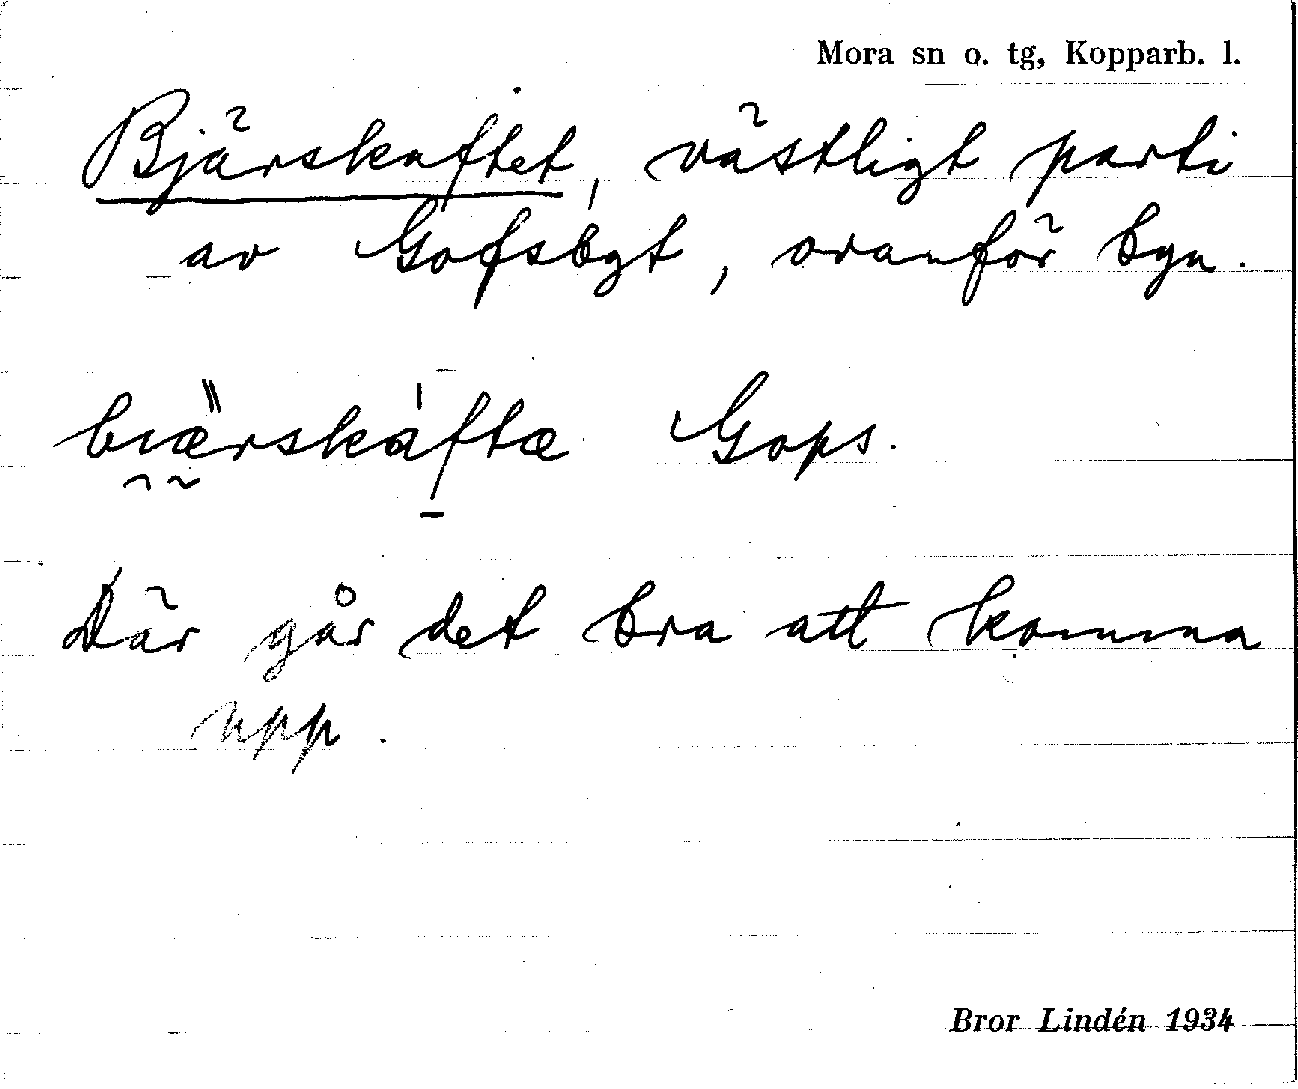 Mora sn o. tg, Kopparb. l.
Bjärskaftet, västligt parti
av Gopsbgt, ovanför byn.
bıærskaftæ Gops.
Där går det bra att komma
upp.
Bror Lindén 1934